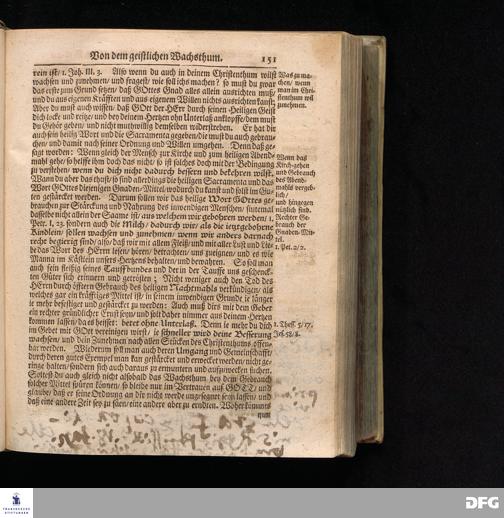 Von dem geistlichen Wachsthum. 151
rein ist/ 1. Joh. III. 3. Also wenn du auch in deinem Christenthum wilst
wachsen und zunehmen/ und fragest/ wie soll ichs machen? so must du zwar
das erste zum Grund setzen/ daß GOttes Gnad alles allein ausrichten muß/
und du aus eigenen Kräfften und aus eigenem Willen nichts ausrichten kanst;
Aber du must auch wissen/ daß GOtt der HErr durch seinen Heiligen Geist
dich locke und reitze/ und bey deinem Hertzen ohn Unterlaß anklopffe/ dem must
du Gehör geben/ und nicht muthwillig demselben widerstreben. Er hat dir
auch sein heiligs Wort und die Sacramenta gegeben/ die must du auch gebrau-
chen/ und damit nach seiner Ordnung und Willen umgehen. Denn daß ge-
sagt worden: Wenn gleich der Mensch zur Kirche und zum heiligen Abend-
mahl gehe/ so helffe ihm doch das nicht/ so ist solches doch mit der Bedingung
zu verstehen/ wenn du dich nicht dadurch bessern und bekehren wilst.
Wann du aber das thust/ so sind allerdings die heiligen Sacramenta und das
Wort GOttes diejenigen Gnaden-Mittel/ wodurch du kanst und solst im Gu-
ten gestärcket werden. Darum sollen wir das heilige Wort GOttes ge-
brauchen zur Stärckung und Nahrung des innwendigen Menschen/ sintemal
dasselbe nicht allein der Saame ist/ aus welchem wir gebohren werden/ 1.
Petr. I, 23. sondern auch die Milch/ dadurch wir/ als die ietztgebohrne
Kindlein/ sollen wachsen und zunehmen/ wenn wir anders darnach
recht begierig sind/ also/ daß wir mit allem Fleiß/ und mit aller Lust und Lie-
be das Wort des HErrn lesen/ hören/ betrachten/ uns zueignen/ und es wie
Manna im Kästlein unsers Hertzens behalten/ und bewahren. So soll man
auch sein fleißig seines Tauffbundes und der in der Tauffe uns geschenck-
ten Güter sich erinnern und getrösten; Nicht weniger auch den Tod des
HErrn durch öfftern Gebrauch des heiligen Nachtmahls verkündigen/ als
welches gar ein kräfftiges Mittel ist/ in seinem inwendigen Grunde ie länger
ie mehr befestiget und gestärckt zu werden: Auch muß dirs mit dem Gebet
ein rechter gründlicher Ernst seyn/ und solt daher nimmer aus deinem Hertzen
kommen lassen/ da es heisset: betet ohne Unterlaß. Denn ie mehr du dich
im Gebet mit GOtt vereinigen wirst/ ie schneller wird deine Besserung
wachsen/ und dein Zunehmen nach allen Stücken des Christenthums offen-
bar werden. Wiederum soll man auch deren Umgang und Gemeinschafft/
durch deren gutes Exempel man kan gestärcket und erwecket werden/ nicht ge-
ringe halten/ sondern sich auch daraus zu ermuntern und aufzuwecken suchen.
Soltest du auch gleich nicht alsobald das Wachsthum bey dem Gebrauch
solcher Mittel spüren können/ so bleibe nur im Vertrauen auf GOTT/ und
glaube/ daß er seine Ordnung an dir nicht werde ungesegnet seyn lassen/ und
daß eine andere Zeit sey zu säen/ eine andere aber zu erndten. Woher kommts
nun
Was zu ma-
chen/ wenn
man im Chri-
stenthum will
zunehmen.
Wenn das
Kirch-gehen
und Gebrauch
des Abend-
mahls vergeb-
lich/
und hingegen
nützlich sind.
Rechter Ge-
brauch der
Gnaden-Mit-
tel.
1. Pet. 2/2.
1. Thess. 5/17.
FRANCKESCHE
STIFTUNGEN
DFG